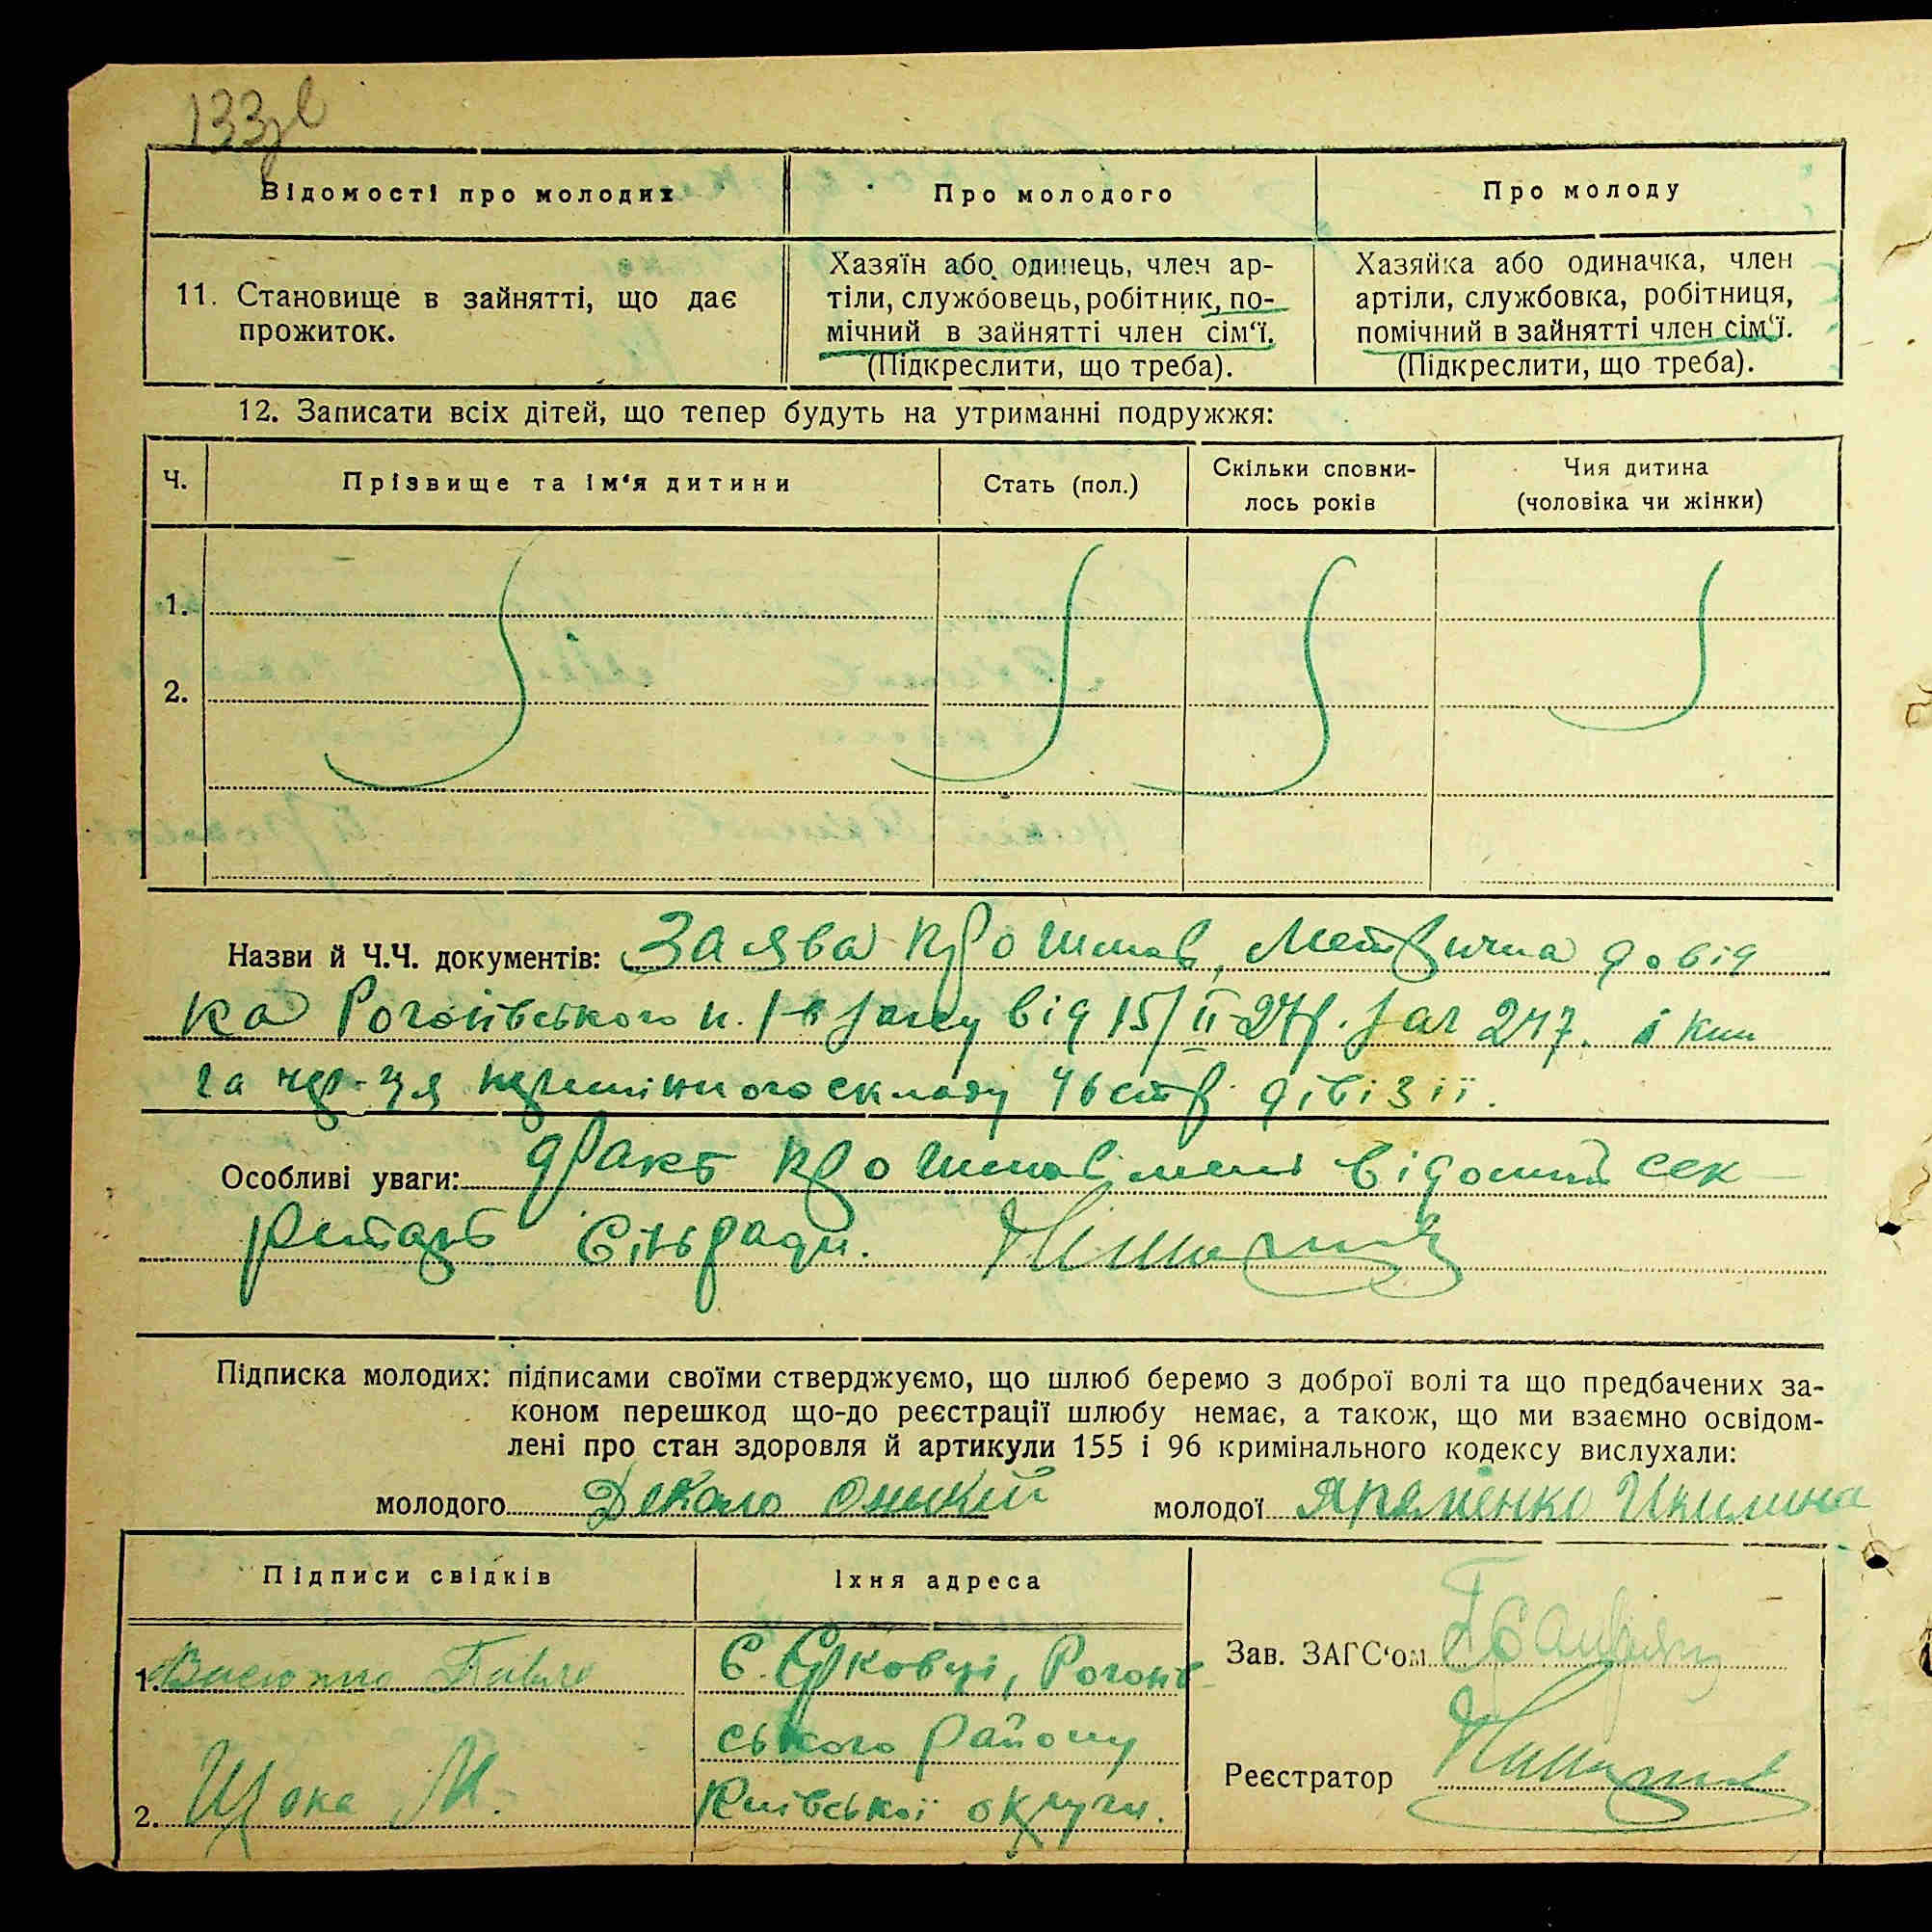 133
Відомості про молодих
Про молодого
Про молоду
11. Становище в зайнятті, що дає
прожиток.
Хазяїн або одинець, член ар-
тіли, службовець, робітник, по-
мічний в зайнятті член сім‘ї.
(Підкреслити, що треба).
Хазяйка або одиначка, член
артіли, службовка, робітниця,
помічний в зайнятті член сім‘ї.
(Підкреслити, що треба).
12. Записати всіх дітей, що тепер будуть на утриманні подружжя:
Ч.
Прізвище та ім‘я дитини
Стать (пол.)
Скільки сповни-
лось років
Чия дитина
(чоловіка чи жінки)
1.
2.
Назви й Ч.Ч. документів: Заява про шлюб, Метрична довід
ка Рогозівського від 15/II-27р. за 247. і кни
га чер-ця складу 46 стр. дівізії.
Особливі уваги: факт про шлюб мені відомий сек
ретарь Сільради.
Підписка молодих: підписами своїми стверджуємо, що шлюб беремо з доброї волі та що предбачених за-
коном перешкод що-до реєстрації шлюбу немає, а також, що ми взаємно освідом-
лені про стан здоровля й артикули 155 і 96 кримінального кодексу вислухали:
молодого Декало Оникій молодої Яременко Икилина
Підписи свідків
Їхня адреса
1. Васютко Павло
С. Єрковці, Рогозів
ського району
2. Щока М.
Київської округи.
Зав. ЗАГС‘ом
Реєстратор